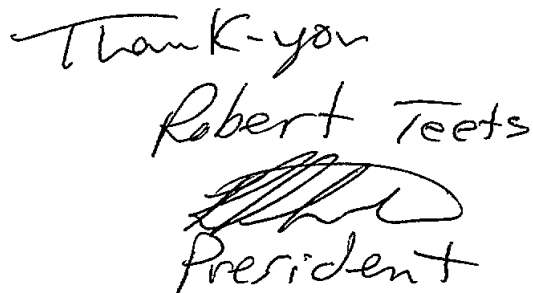 Thank-you
Robert Teets
President